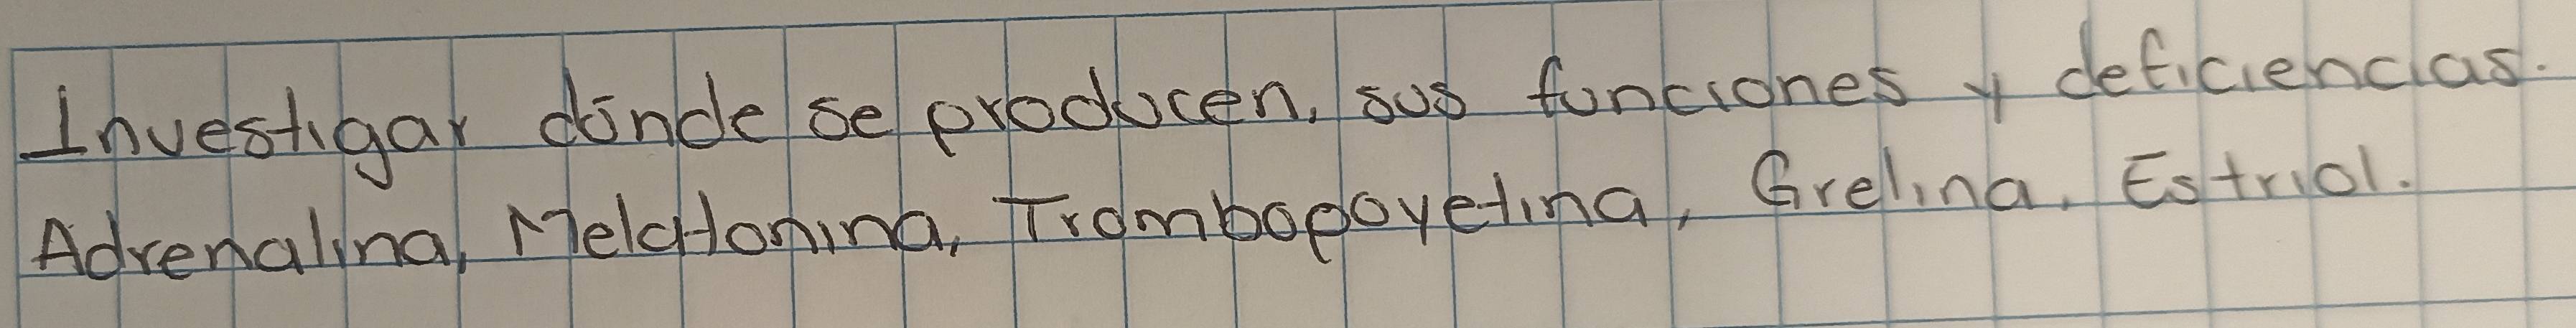 Investigar dónde se producen, sus funciones y deficiencias.
Adrenalina, Melatonina, Trombopoyetina, Grelina, Estriol.